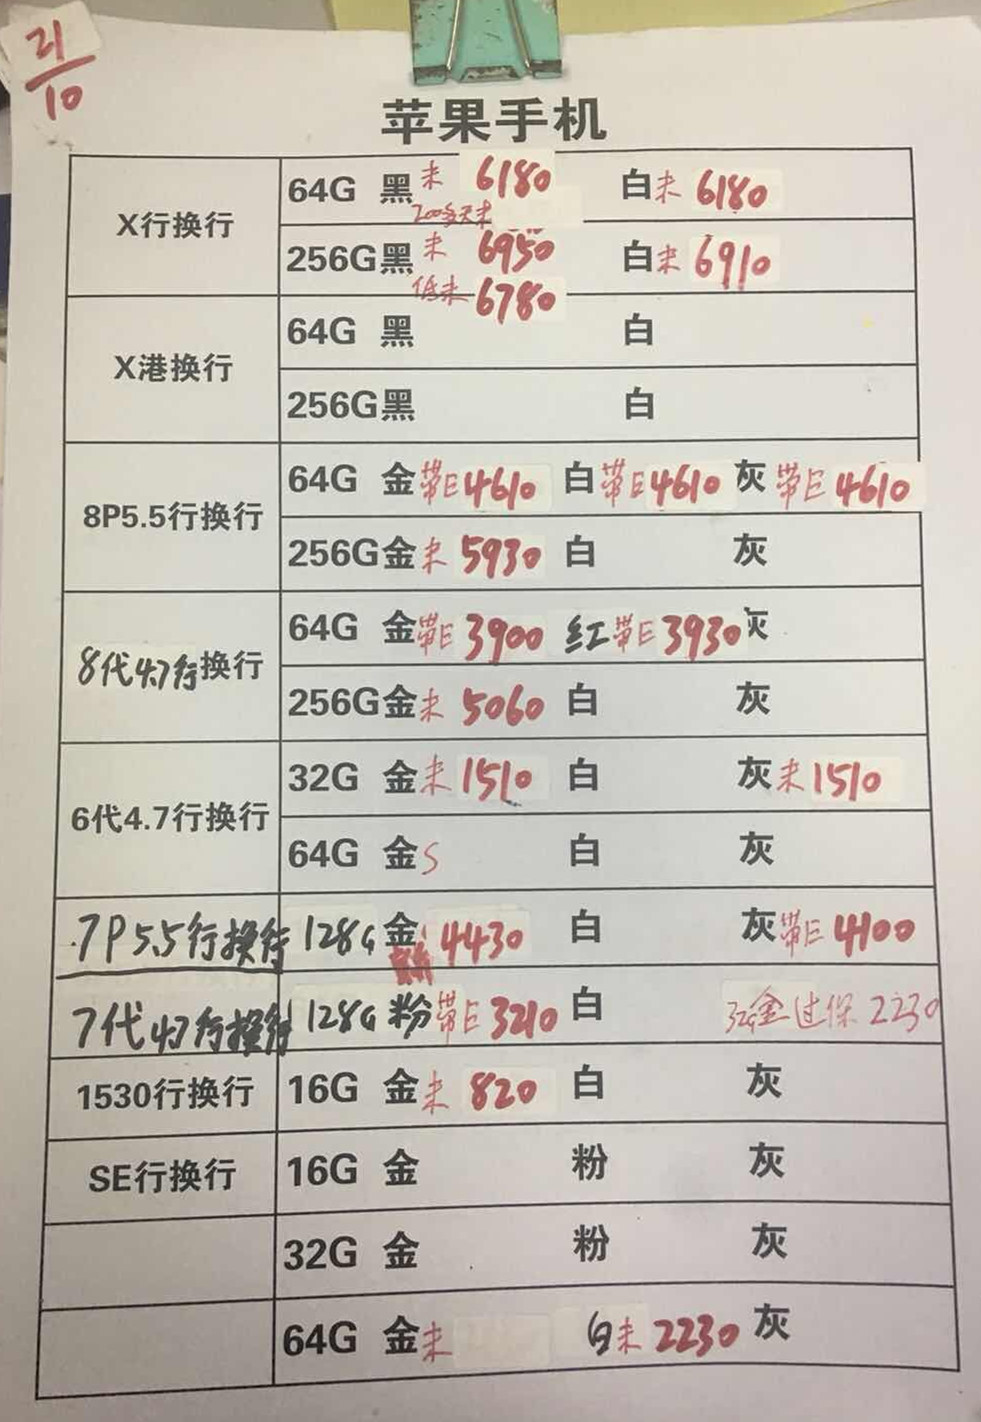 21/10
苹果手机
X行换行 64G 黑 未 6180 白 未 6180
200多天未
256G 黑 未 6950 白 未 6910
低未 6780
X港换行 64G 黑 白
256G 黑 白
8P5.5行换行 64G 金 带E 4610 白 带E 4610 灰 带E 4610
256G 金 未 5930 白 灰
8代4.7行换行 64G 金 带E 3900 红 带E 3930 灰
256G 金 未 5060 白 灰
6代4.7行换行 32G 金 未 1510 白 灰 未 1510
64G 金 S 白 灰
7P5.5行换行 128G 金 4430 白 灰 带E 4100
7代4.7行换行 128G 粉 带E 3210 白 32G金过保 2230
1530行换行 16G 金 未 820 白 灰
SE行换行 16G 金 粉 灰
32G 金 粉 灰
64G 金 未 白 未 2230 灰